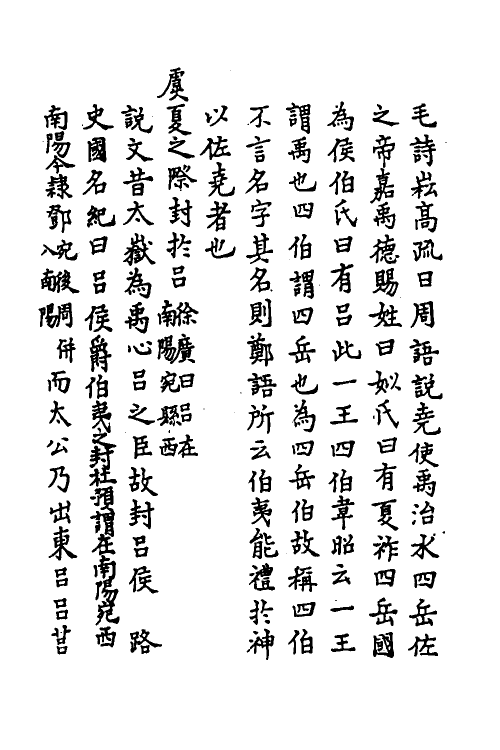 毛詩崧高疏曰周語說堯使禹治水四岳佐
之帝嘉禹德賜姓曰姒氏曰有夏祚四岳國
為侯伯氏曰有呂此一王四伯韋昭云一王
謂禹也四伯謂四岳也為四岳伯故稱四伯
不言名字其名則鄭語所云伯夷能禮於神
以佐堯者也
虞夏之際封於呂徐廣曰呂在南陽宛縣西
說文昔太嶽為禹心呂之臣故封呂侯 路
史國名紀曰呂侯爵伯夷之封杜預謂在南陽宛西
南陽今隸鄧宛後周入南陽併而太公乃出東呂呂莒